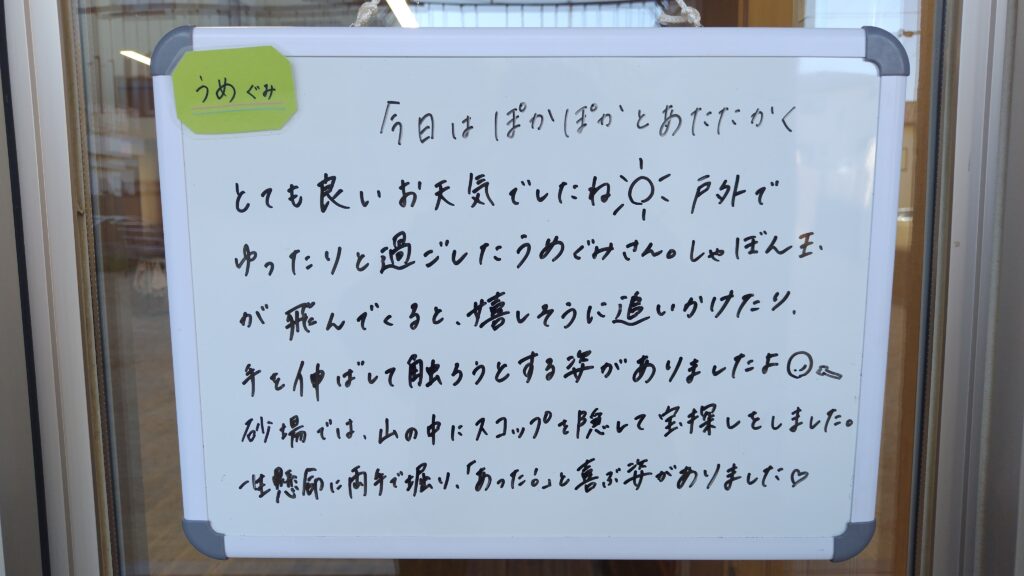 うめぐみ
今日はぽかぽかとあたたかく
とても良いお天気でしたね 戸外で
ゆったりと過ごしたうめぐみさん。しゃぼん玉
が飛んでくると、嬉しそうに追いかけたり、
手を伸ばして触ろうとする姿がありましたよ
砂場では、山の中にスコップを隠して宝探しをしました。
一生懸命に両手で掘り、「あった!」と喜ぶ姿がありました♡